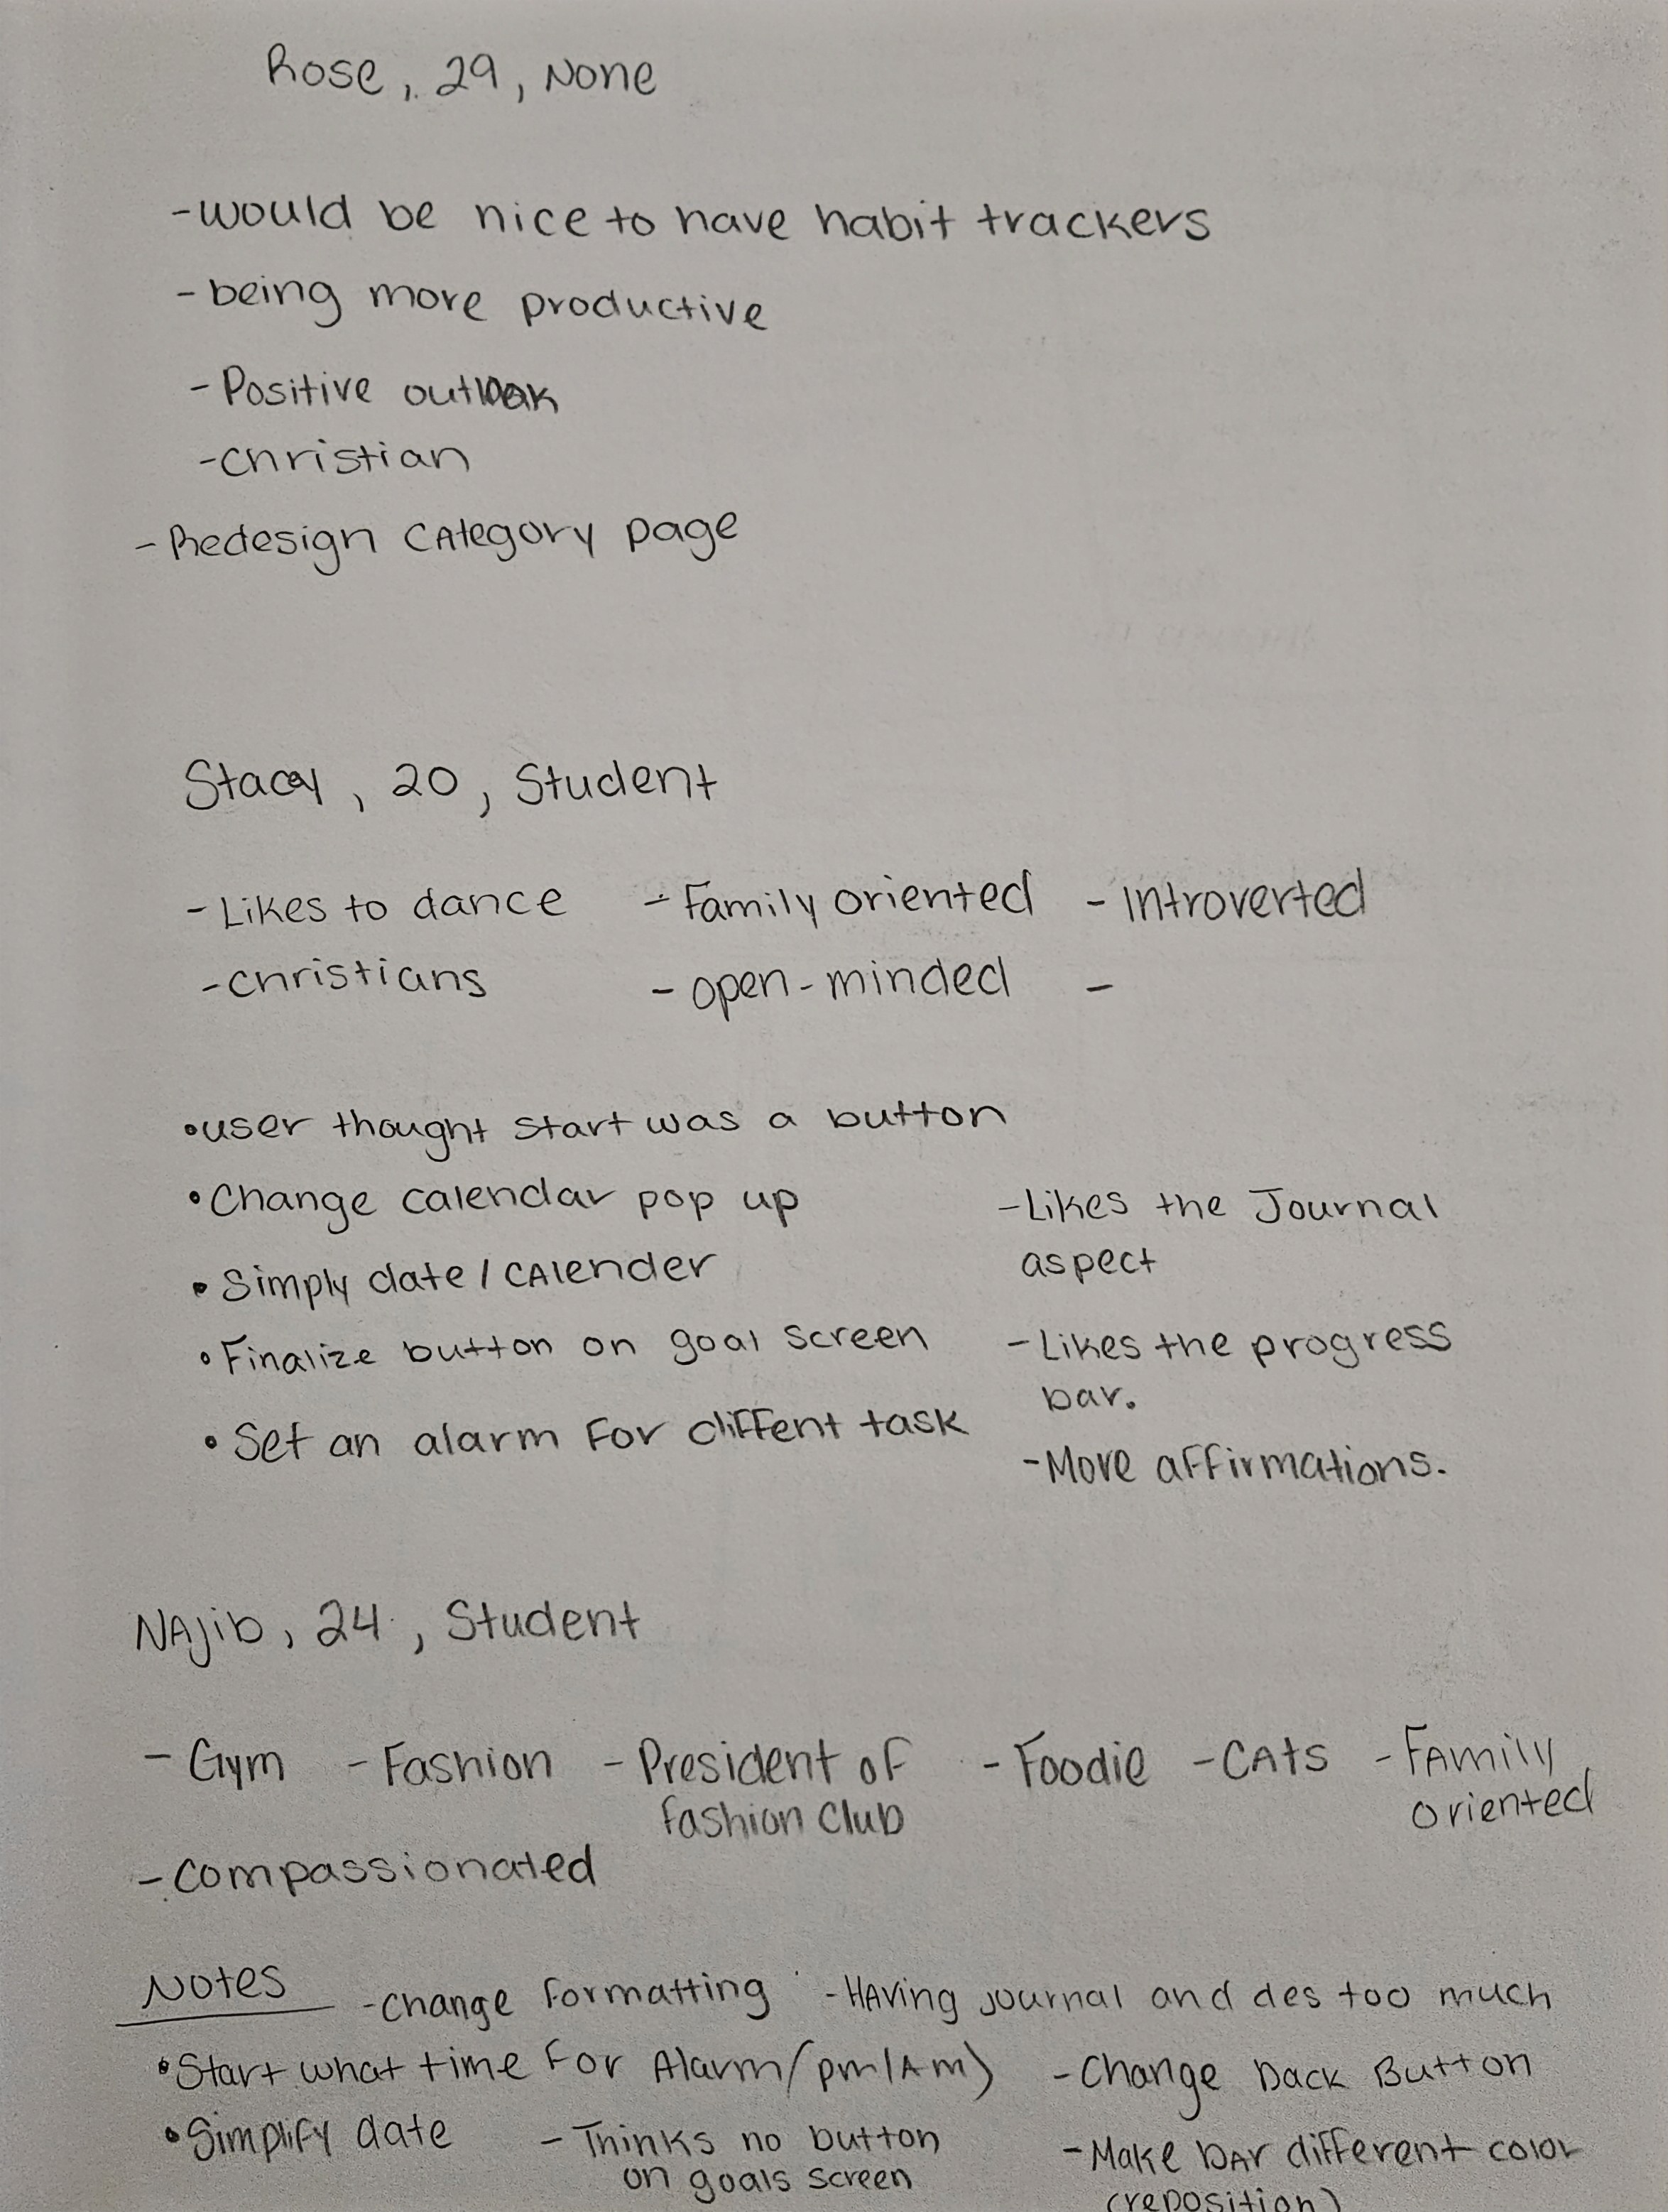 Rose, 29, None
- would be nice to have habit trackers
- being more productive
- Positive outlook
- christian
- Redesign Category page
Stacy, 20, Student
- Likes to dance - Family oriented - Introverted
- christians - open-minded -
• user thought start was a button
• Change calendar pop up
• Simply date/CAlender
• Finalize button on goal screen
• Set an alarm For diffent task
- Likes the Journal
aspect
- Likes the progress
bar.
- More affirmations.
NAjib, 24, Student
- Gym - Fashion - President of - Foodie - CAts - FAmily
fashion Club oriented
- Compassionated
Notes - change formatting - HAving journal and des too much
• Start what time For Alarm (pm/Am) - Change back Button
• Simplify date - Thinks no button - Make bAr different color
on goals screen (reposition)